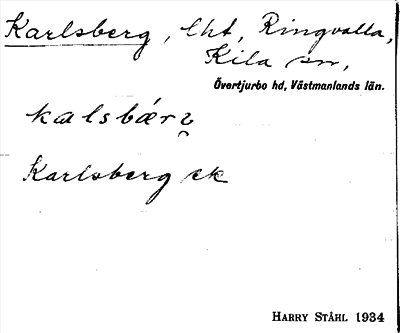 Karlsberg, lht, Ringvalla,
Kila sn,
Övertjurbo hd, Västmanlands län.
Karlsberg ek
HARRY STÅHL 1934